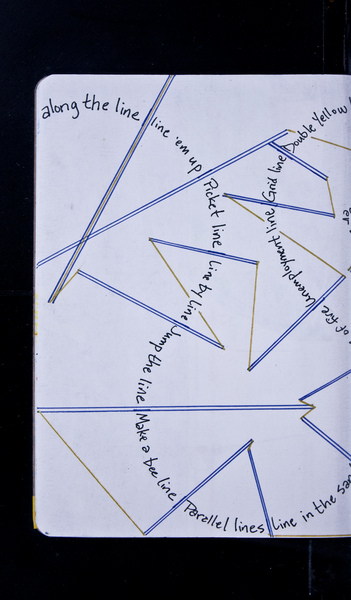 along the line
line 'em up
Picket line
line by line
Jump the line
Make a bee line
Parallel lines
line in the
Double Yellow
Grid line
unemployment line
of fire